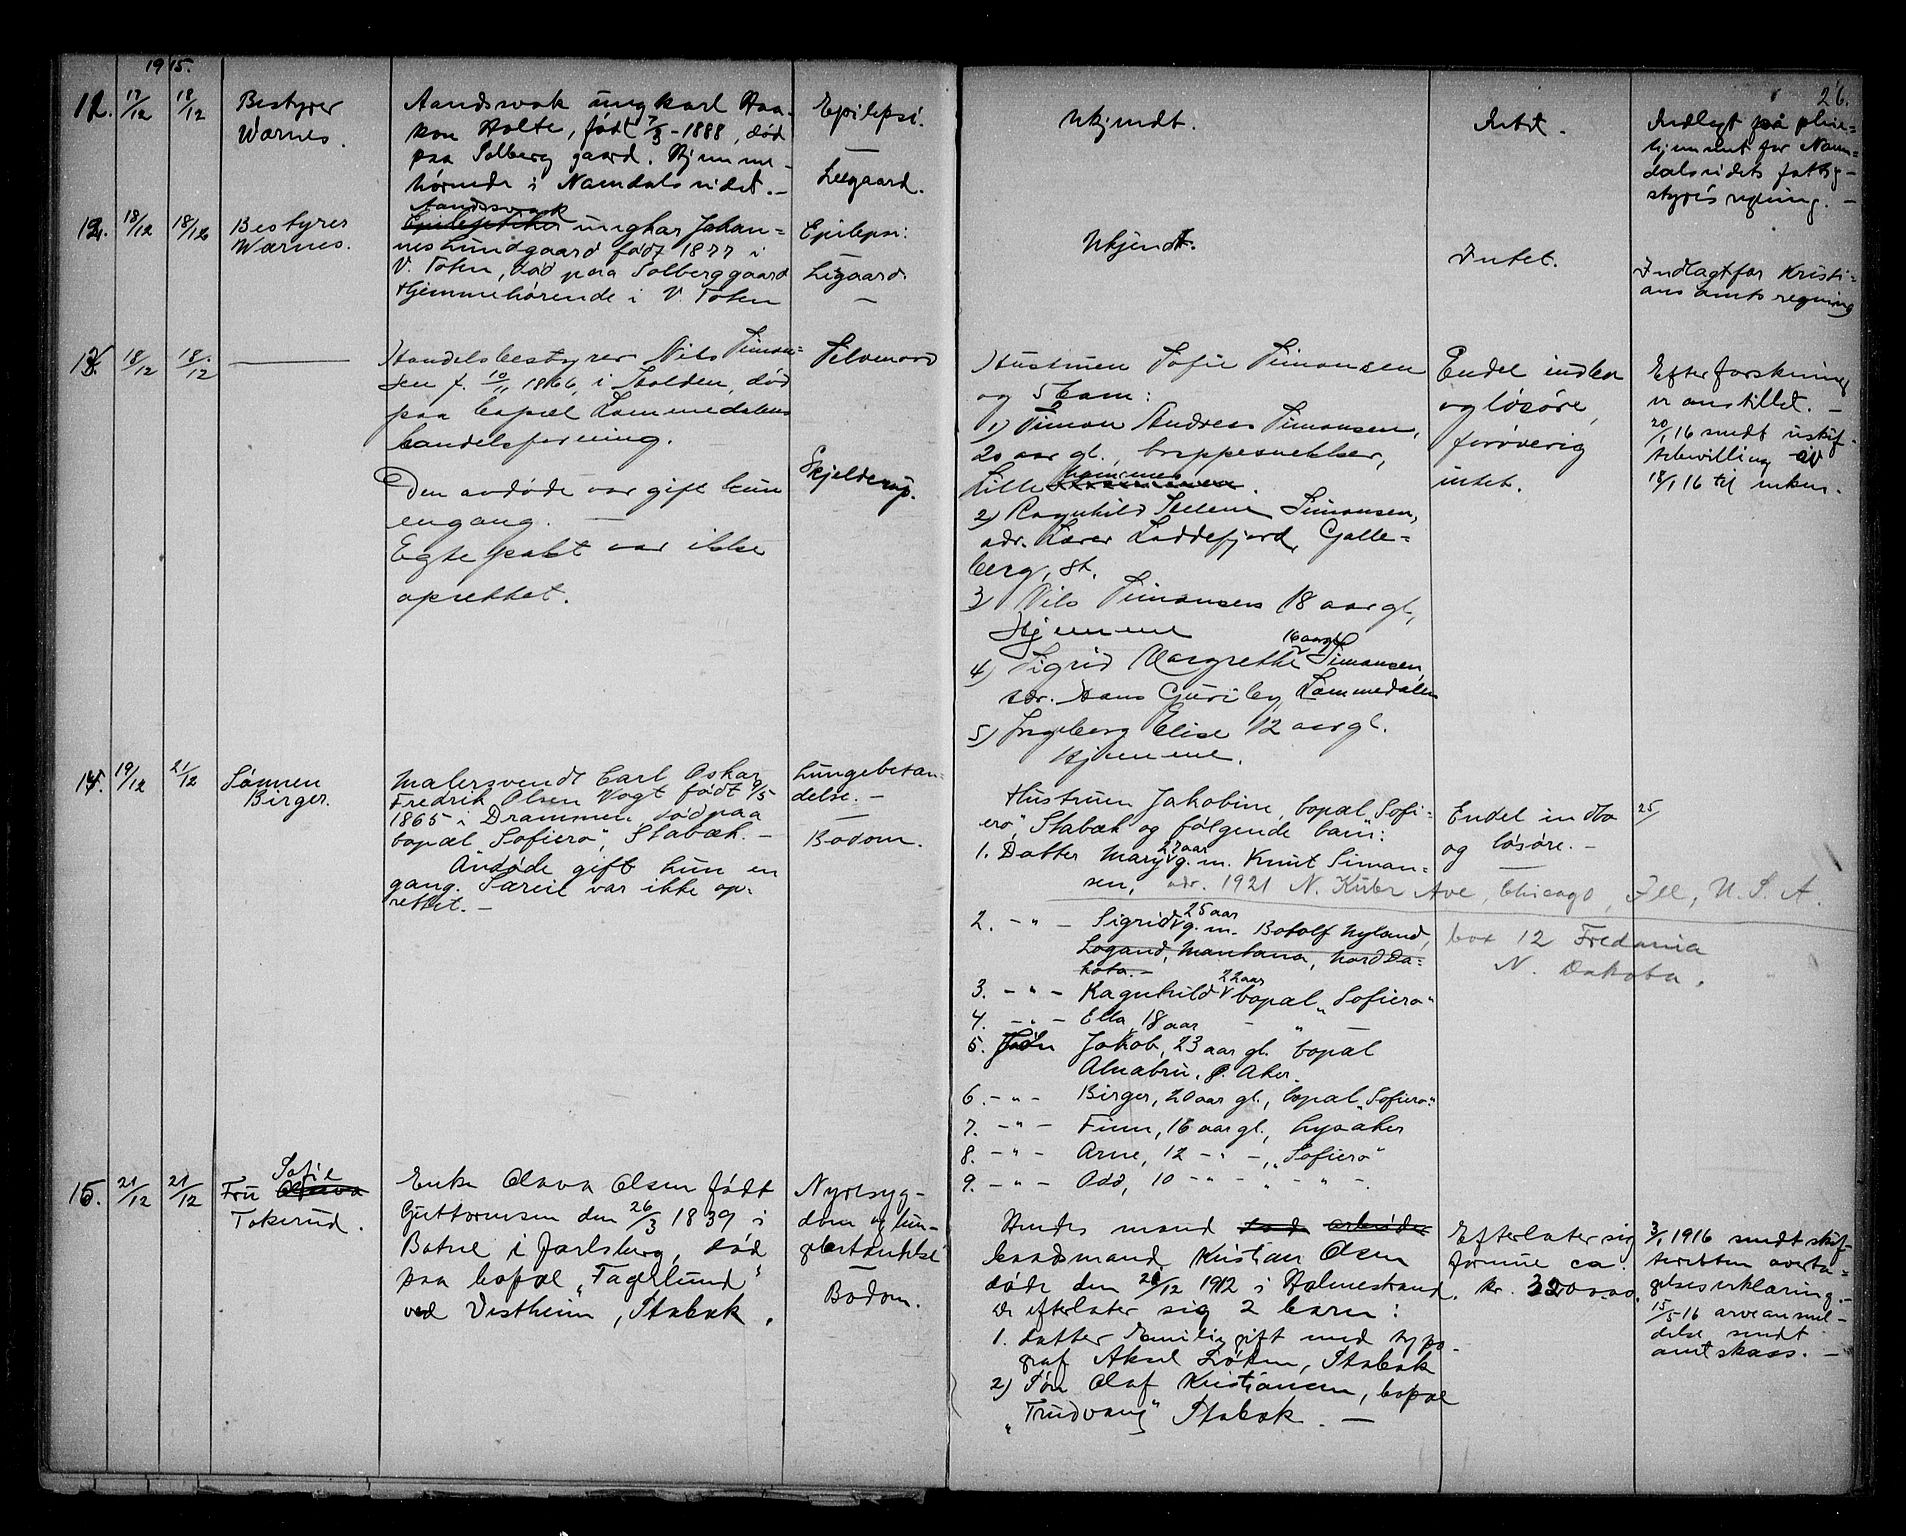 1915.
26.
11. 17/12 18/12
Bestyrer
Wærnes.
Aandssvak ungkarl Haa-
kon Holte, født 7/3-1888, død
paa Solberg gaard. Hjemme-
hørende i Namdalseidet.-
Epilepsi.
Leegaard.
Ukjendt.
Intet.
Indlagt på pleie-
hjemmet for Nam-
dalseidets fattig-
styres regning.-
12. 18/12 18/12
Bestyrer
Wærnes.
Aandssvak
Epileptiker ungkar Johan-
nes Lundgaard født 1877 i
V. Toten, død paa Solberggaard
Hjemmehørende i V. Toten
Epilepsi:
Ligaard.
Ukjendt.
Intet.
Indlagt for Kristi-
ans amts regning
13. 18/12 18/12
Handelsbestyrer Nils Timan-
sen f. 10/11 1866, i Halden, død
paa bopæl Lommedalens
handelsforening.
Den avdøde var gift kun
engang.
Egtepakt var ikke
oprettet.
Selvmord
Skjelderup.
Hustruen Sofie Simonsen
og 5 barn:
1) Simon Andreas Simonsen,
20 aar gl. trappesnekker,
Lille
2) Ragnhild Helene Simonsen,
adr. Lærer Loddefjord, Galle-
berg, st.
3) Nils Simonsen 18 aar gl,
Hjemme
16 aar gl
4) Sigrid Margrethe Simonsen,
adr. Hans Guriby Lommedalen
5) Ingeborg Elise 12 aar gl.
Hjemme.
Endel indbo
og løsøre,
forøvrig
intet.
Efterforskning
er anstillet.-
20/1 16 sendt uskif-
tebevilling av
18/1 16 til enken.
14. 19/12 21/12
Sønnen
Birger.
Malersvendt Carl Oskar
Fredrik Olsen Vogt født 9/5
1865 i Drammen, død paa
bopæl Sofiero", Stabæk.-
Avdøde gift kun en
gang. Særeie var ikke op-
rettet.-
Lungebetæn-
delse.-
Bodom.
Hustruen Jakobine, bopæl "Sofi-
ero", Stabæk og følgende barn:
27 aar
1. Datter Mary g. m. Knut Siman-
sen, adr. 1921 N. Ave, Chicago, Ill, U. S. A.
25 aar
2. -"- Sigrid g. m. Botolf Nyland,
Logand, Mantana, Nord Da-
kota.-
box 12 Fredonia
N. Dakota.
22 aar
3. -"- Ragnhild bopæl "Sofiero"
4. -"- Ella 18 aar - " -
5. Søn Jakob, 23 aar gl. bopæl
Alnabru, p. Aker.
6. -"- Birger, 20 aar gl., bopæl "Sofiero"
7. -"- Finn, 16 aar gl., Lysaker
8. -"- Arne, 12 -"-, "Sofiero"
9. -"- Odd, 10 -"- " -"-.
Endel indbo
og løsøre.-
25/
15. 21/12 21/12
Sofie
Fru Olava
Tokerud.
Enke Olava Olsen født
Guttormsen den 26/3 1839 i
Botne i Jarlsberg, død
paa bopæl "Fagerlund"
ved Vestheim, Stabæk.
Nyresyg-
dom og lun-
gebetændelse
Bodom.
Hendes mand død arbeider
baadsmand Kristian Olsen
døde den 28/12 1912 i Holmestrand.
De efterlater sig 2 barn:
1. datter Emilie gift med typo-
graf Aksel Løken, Stabæk
2) Søn Olaf Kristiansen, bopæl
"Trudvang" Stabæk.-
Efterlater sig
formue ca.
kr. 32000.00.
3/1 1916 sendt skif-
teretten overta-
gelseserklæring.-
15/5-16 arveanmel-
delse sendt
amtskass.-